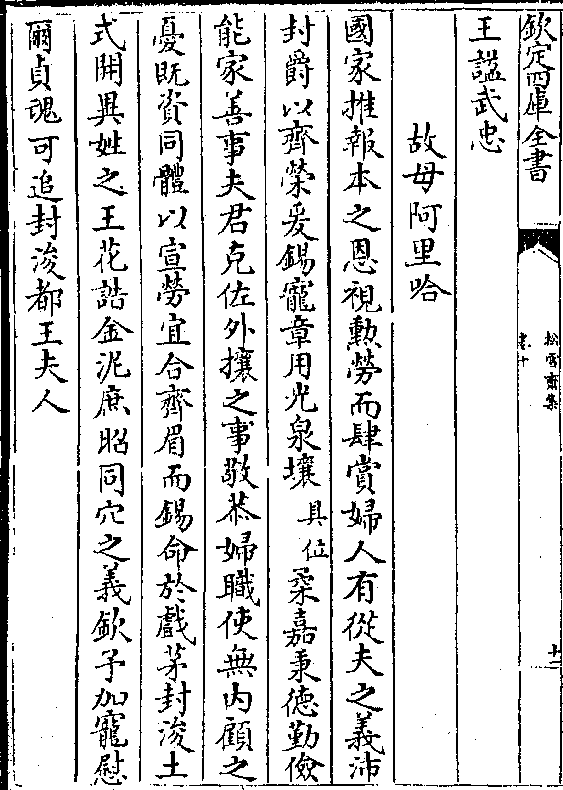 欽定四庫全書
松雪齋集
卷十
十二
王謚武忠
故母阿里哈
國家推報本之恩視勲勞而肆賞婦人有從夫之義沛
封爵以齊榮爰錫寵章用光泉壤具位柔嘉秉德勤儉
能家善事夫君克佐外攘之事敬恭婦職使無内顧之
憂既資同體以宣勞宜合齊眉而錫命於戲茅封浚土
式開異姓之王花誥金泥庶昭同穴之義歆予加寵慰
爾貞魂可追封浚都王夫人